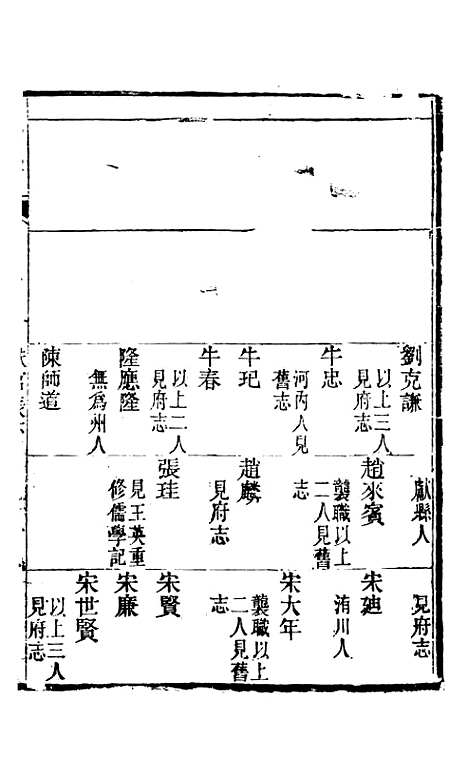 劉克謙
以上三人
見府志
牛忠
河内人見
舊志
牛玘
牛春
以上二人
見府志
隆應隆
無爲州人
陳師道
獻縣人
趙來賓
襲職以上
二人見舊
志
趙麟
見府志
張珪
見王英重
修儒學記
見府志
宋廸
洧川人
宋大年
襲職以上
二人見舊
志
宋賢
宋廉
宋世賢
以上三人
見府志